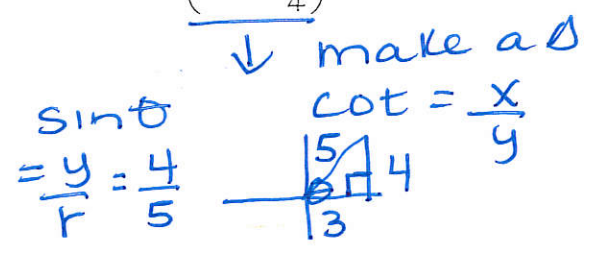 4)
↓ make a Δ
sinθ
= y/r = 4/5
cot = x/y
5
4
θ
3